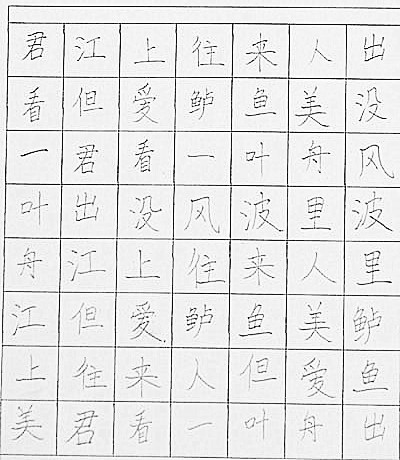 君江上往来人出
看但爱鲈鱼美没
一君看一叶舟风
叶出没风波里波
舟江上往来人里
江但爱鲈鱼美鲈
上往来人但爱鱼
美君看一叶舟出